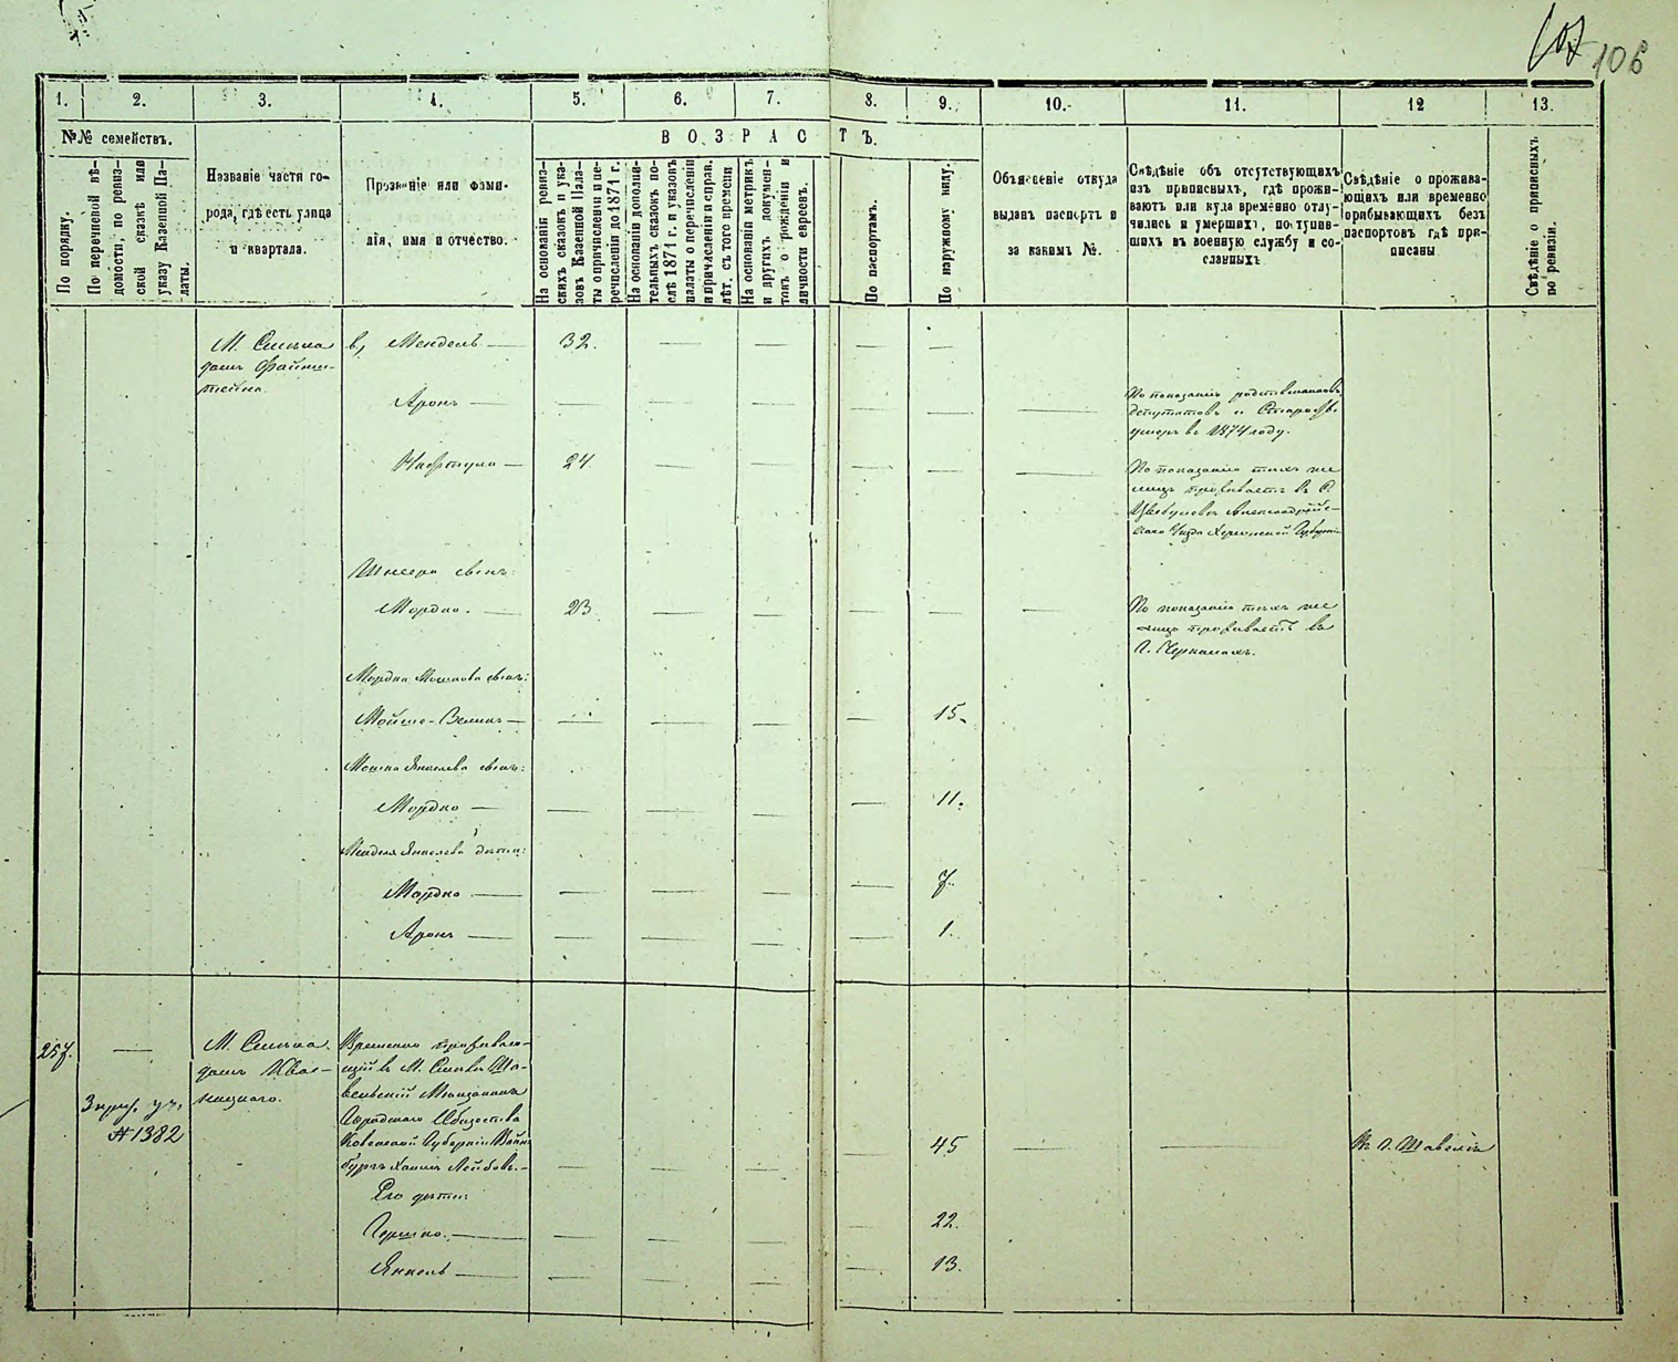 107
106
1.
2.
3.
4.
5.
6.
7.
8.
9.
10.
11.
12
13.
№№ семействъ.
В О З Р А С Т Ъ.
По порядку.
По перечневой вѣ-
домости, по ревиз-
ской сказкѣ или
указу Казенной Па-
латы.
Названіе части го-
рода, гдѣ есть улица
и квартала.
Прозваніе или фами-
лія, имя и отчество.
На основаніи ревиз-
скихъ сказокъ и ука-
зовъ Казенной Пала-
ты о причисленіи и пе-
речисленіи до 1871 г.
На основаніи дополни-
тельныхъ сказокъ по-
слѣ 1871 г. и указовъ
палаты о перечисленіи
и причисленіи и справ.
лѣт. съ того времени
На основаніи метрикъ
и другихъ докумен-
товъ о рожденіи и
личности евреевъ.
По паспортамъ.
По наружному виду.
Объясненіе откуда
выданъ паспортъ и
за какимъ №.
Свѣдѣніе объ отсутствующихъ
изъ приписныхъ, гдѣ прожи-
ваютъ или куда временно отлу-
чились и умершихъ, поступив-
шихъ въ военную службу и со-
сланныхъ
Свѣдѣніе о прожива-
ющихъ или временно
прибывающихъ безъ
паспортовъ гдѣ при-
писаны
Свѣдѣніе о приписныхъ
по ревизіи.
М. Смѣла
домъ Файнш-
тейна
в, Мендель 32.
Аронъ
По показанію родственниковъ
депутатовъ и Старосты
умеръ въ 1874 году.
Нафтула 24
По показанію тѣхъ же
лицъ проживаетъ въ С.
Александрій-
скаго Уѣзда Херсонской Губерніи
сынъ:
Мордко. 23
По показанію тѣхъ же
лицъ проживаетъ въ
Г. Черкасахъ.
Мордка Мошкова сынъ:
Мойше-Велькъ 15.
Мошка Янкелева сынъ:
Мордко 11.
Менделя Янкелева дѣти:
Мордко 7.
Аронъ 1.
257.
3 приз. уч.
№ 1382
М. Смѣла.
домъ Квас-
ницкаго.
Временно прожива-
ющій въ М. Смѣлѣ Ша-
вельскій Мѣщанинъ
Городскаго Общества
Ковенской Губерніи Вайн-
бургъ Хаимъ Лейбовъ. 45 Въ г. Шавеляхъ
Его дѣти:
Гершко. 22.
Янкель 13.